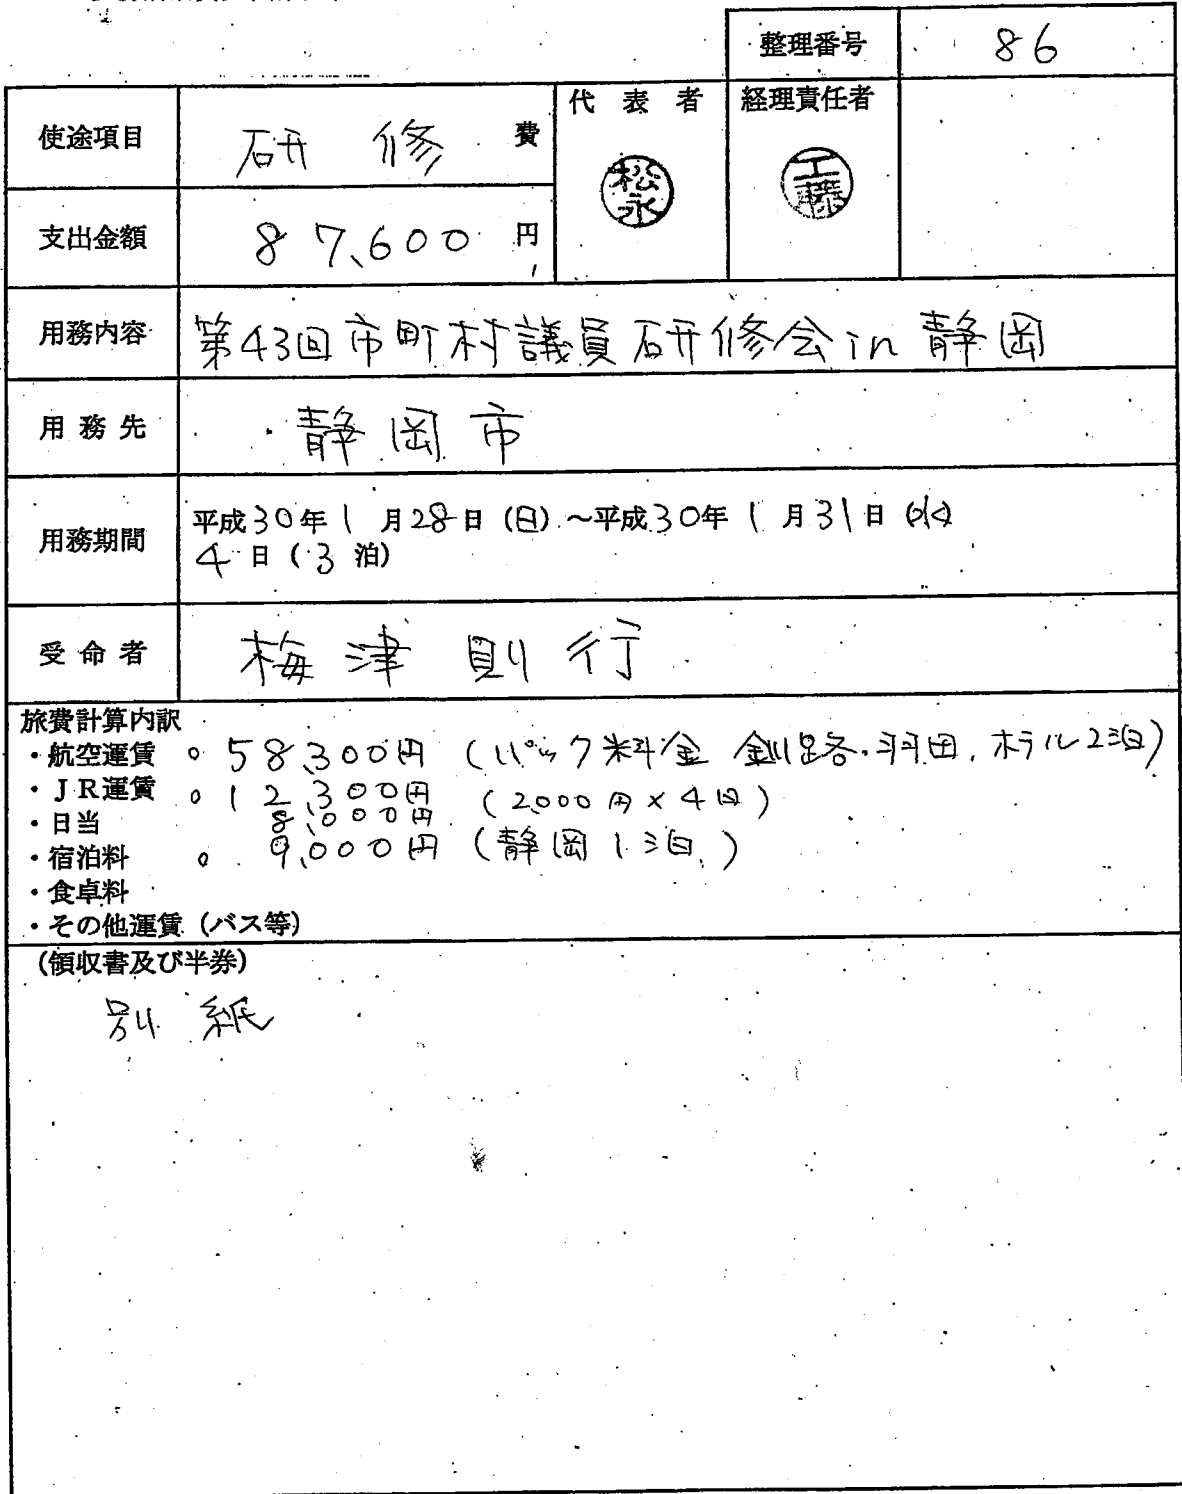 整理番号 86
使途項目 研修費 代表者 経理責任者
松永 工藤
支出金額 87,600円
用務内容 第43回市町村議員研修会in静岡
用務先 静岡市
用務期間 平成30年1月28日(日)~平成30年1月31日(水)
4日(3泊)
受命者 梅津則行
旅費計算内訳
・航空運賃 58,300円(パック料金 釧路・羽田、ホテル2泊)
・JR運賃 12,300円
・日当 8,000円(2,000円×4日)
・宿泊料 9,000円(静岡1泊)
・食卓料
・その他運賃(バス等)
(領収書及び半券)
別紙